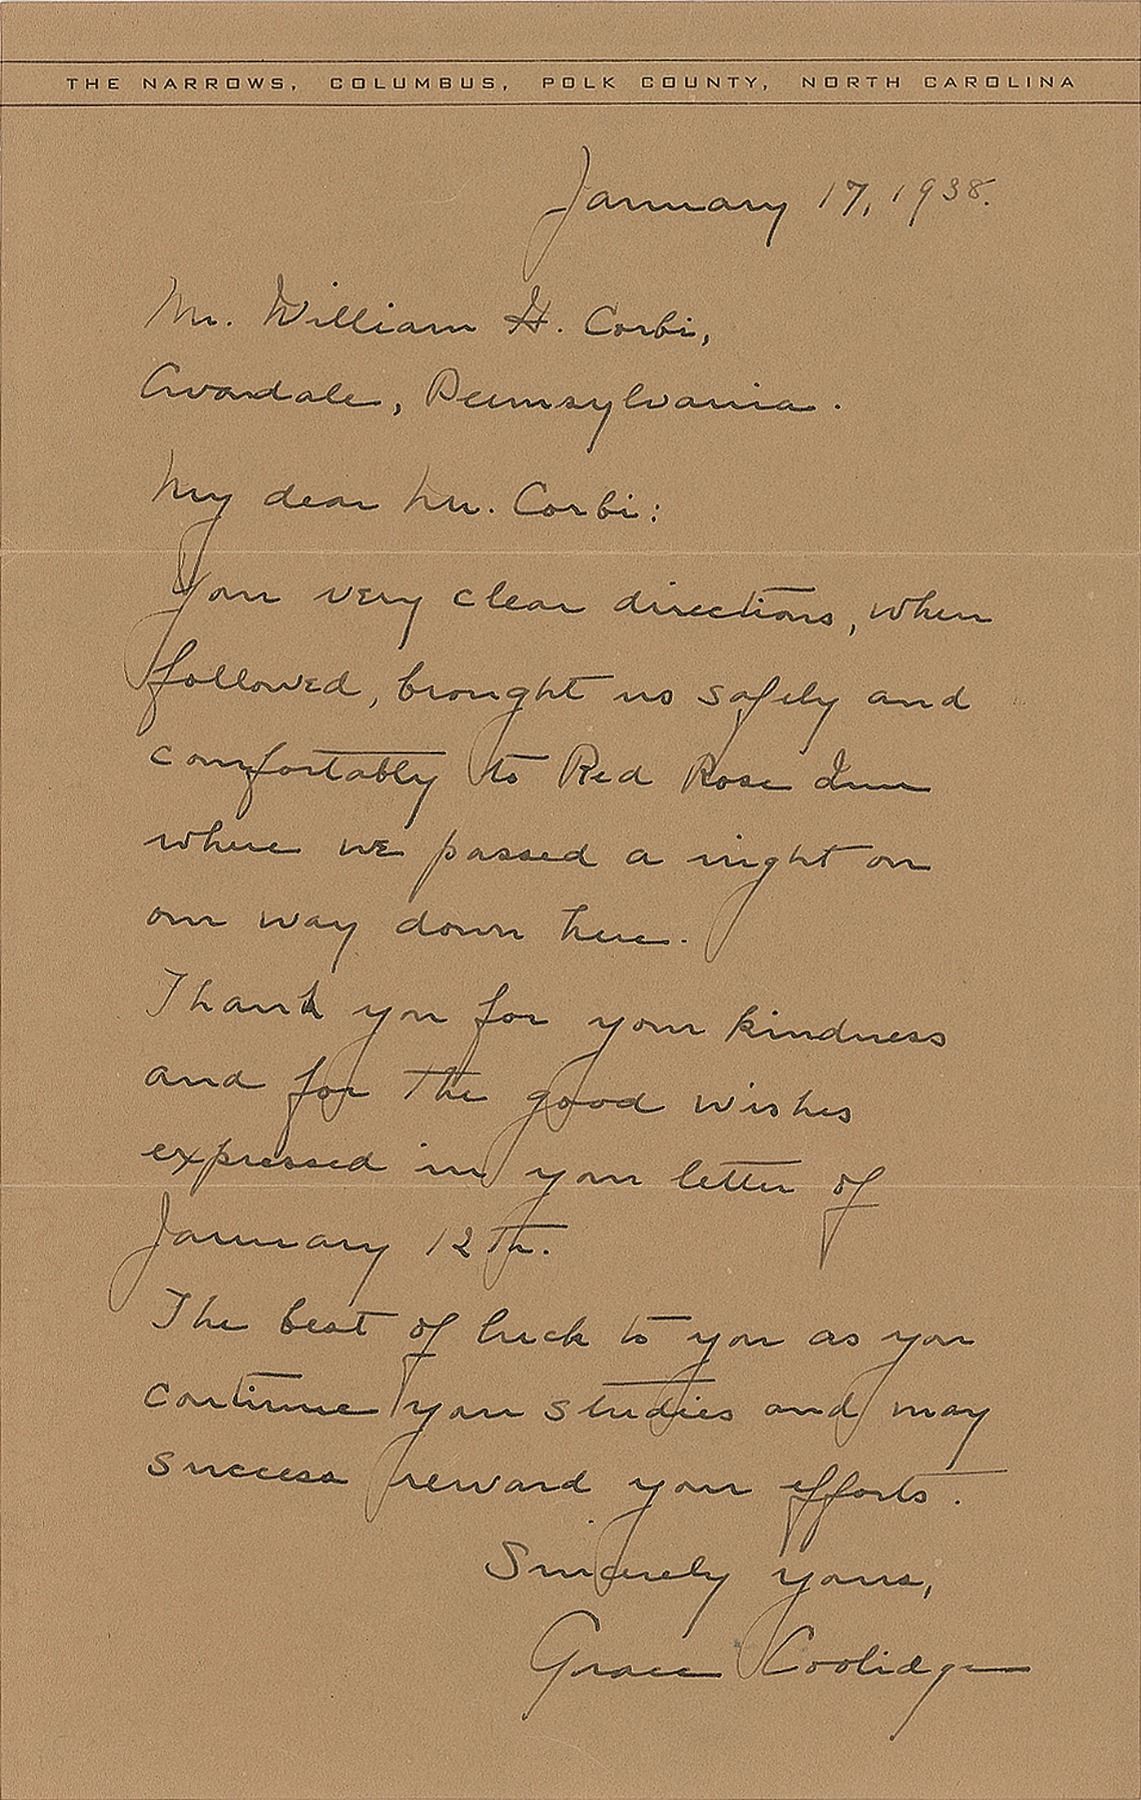 THE NARROWS, COLUMBUS, POLK COUNTY, NORTH CAROLINA
January 17, 1938.
Mr. William H. Corbi,
Avondale, Pennsylvania.
My dear Mr. Corbi:
Your very clear directions, when
followed, brought us safely and
comfortably to Red Rose Inn
where we passed a night on
our way down here.
Thank you for your kindness
and for the good wishes
expressed in your letter of
January 12th.
The best of luck to you as you
continue your studies and may
success reward your efforts.
Sincerely yours,
Grace Coolidge